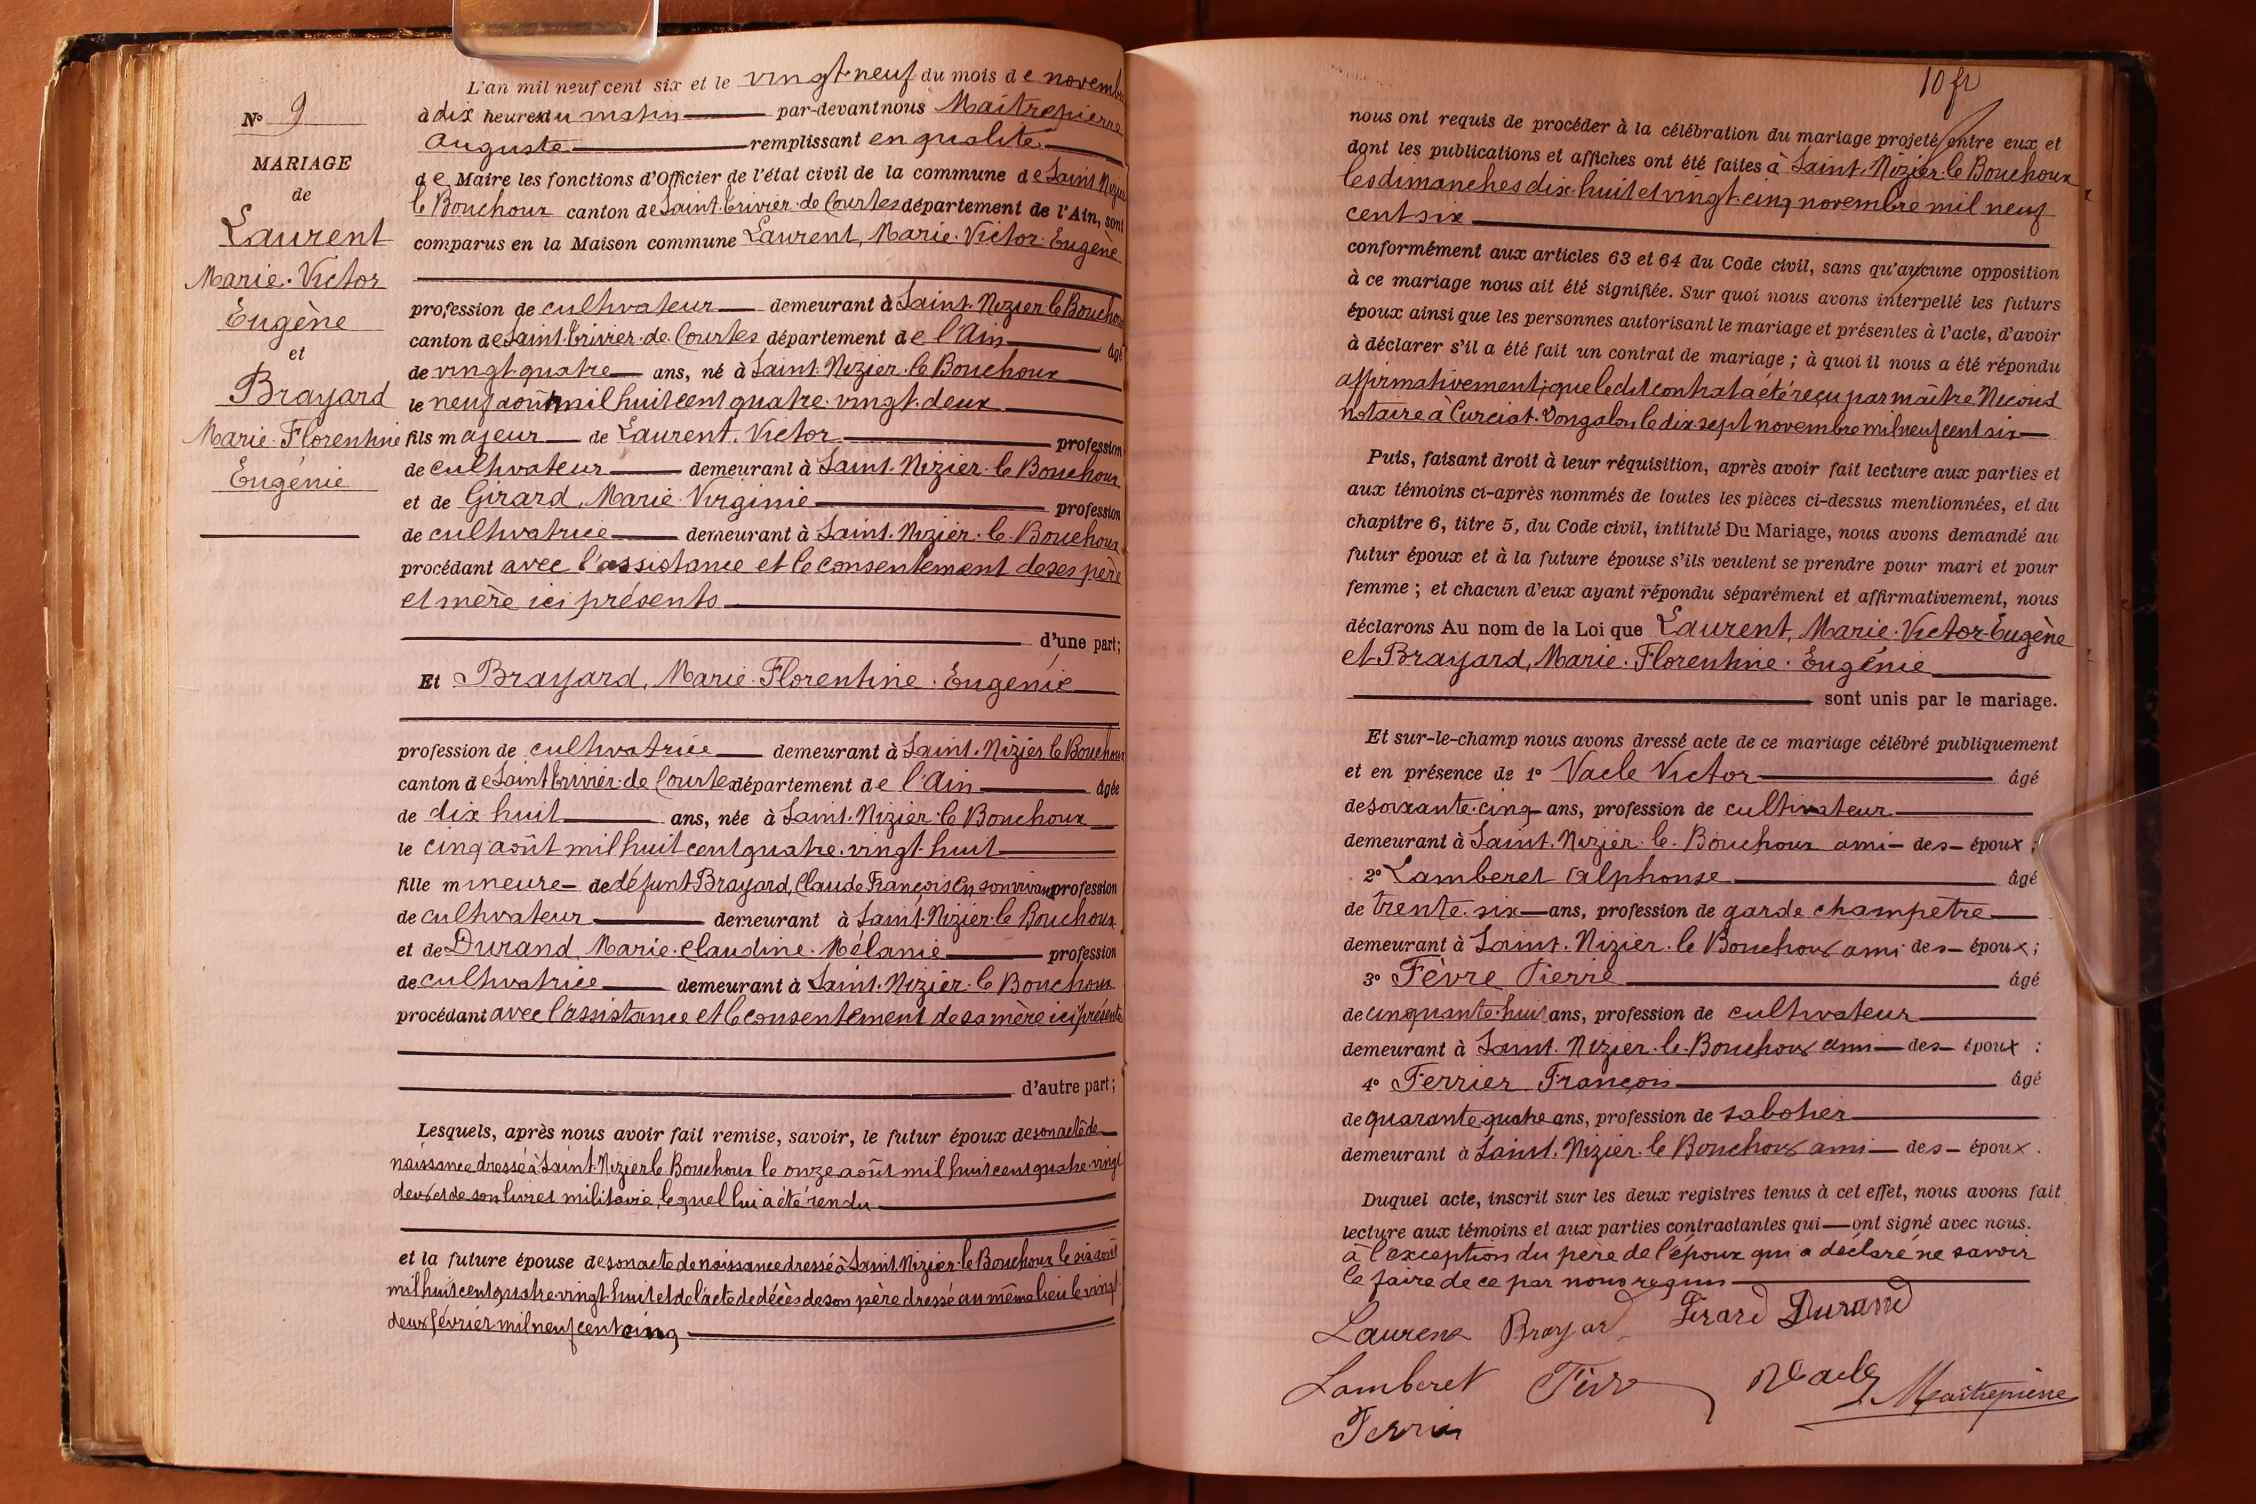 L'an mil neuf cent six et le vingt-neuf du mois de novembre
à dix heures du matin par-devant nous Maitrepierre
Auguste remplissant en qualité
de Maire les fonctions d'Officier de l'état civil de la commune de Saint Nizier
le Bouchoux canton de Saint-Trivier-de Courtes département de l'Ain, sont
comparus en la Maison commune Laurent, Marie-Victor-Eugène
profession de cultivateur demeurant à Saint-Nizier-le Bouchoux
canton de Saint-Trivier-de-Courtes département de l'Ain âgé
de vingt-quatre ans, né à Saint-Nizier-le Bouchoux
le neuf août mil huit cent quatre-vingt-deux
fils majeur de Laurent, Victor profession
de cultivateur demeurant à Saint-Nizier-le Bouchoux
et de Girard, Marie-Virginie profession
de cultivatrice demeurant à Saint-Nizier-le-Bouchoux
procédant avec l'assistance et le consentement de ses père
et mère ici présents
d'une part;
Et Brayard, Marie-Florentine-Eugénie
profession de cultivatrice demeurant à Saint-Nizier le Bouchoux
canton de Saint Trivier-de Courtes département de l'Ain âgée
de dix huit ans, née à Saint-Nizier-le Bouchoux
le cinq août mil huit cent quatre-vingt-huit
fille mineure de défunt Brayard, Claude François en son vivant profession
de cultivateur demeurant à Saint-Nizier-le Bouchoux
et de Durand, Marie-Claudine-Mélanie profession
de cultivatrice demeurant à Saint-Nizier-le Bouchoux
procédant avec l'assistance et le consentement de sa mère ici présente
d'autre part;
Lesquels, après nous avoir fait remise, savoir, le futur époux de son acte de
naissance dressé à Saint-Nizier le Bouchoux le onze août mil huit cent quatre-vingt
deux et de son livret militaire, lequel lui a été rendu
et la future épouse de son acte de naissance dressé à Saint-Nizier-le Bouchoux le six août
mil huit cent quatre vingt-huit et de l'acte de décès de son père dressé au même lieu le vingt-
deux février mil neuf cent cinq
N° 9
MARIAGE
de
Laurent
Marie-Victor
Eugène
et
Brayard
Marie-Florentine
Eugénie
10 fr
nous ont requis de procéder à la célébration du mariage projeté entre eux et
dont les publications et affiches ont été faites à Saint-Nizier-le Bouchoux
les dimanches dix-huit et vingt-cinq novembre mil neuf
cent six
conformément aux articles 63 et 64 du Code civil, sans qu'aucune opposition
à ce mariage nous ait été signifiée. Sur quoi nous avons interpellé les futurs
époux ainsi que les personnes autorisant le mariage et présentes à l'acte, d'avoir
à déclarer s'il a été fait un contrat de mariage; à quoi il nous a été répondu
affirmativement; que ledit contrat a été reçu par maître
notaire à Curciat-Dongalon le dix-sept novembre mil neuf cent six
Puis, faisant droit à leur réquisition, après avoir fait lecture aux parties et
aux témoins ci-après nommés de toutes les pièces ci-dessus mentionnées, et du
chapitre 6, titre 5, du Code civil, intitulé Du Mariage, nous avons demandé au
futur époux et à la future épouse s'ils veulent se prendre pour mari et pour
femme; et chacun d'eux ayant répondu séparément et affirmativement, nous
déclarons Au nom de la Loi que Laurent, Marie-Victor-Eugène
et Brayard, Marie-Florentine-Eugénie
sont unis par le mariage.
Et sur-le-champ nous avons dressé acte de ce mariage célébré publiquement
et en présence de 1° Vacle Victor âgé
de soixante-cinq ans, profession de cultivateur
demeurant à Saint-Nizier-le-Bouchoux ami des époux;
2° Lamberet Alphonse âgé
de trente-six ans, profession de garde champêtre
demeurant à Saint-Nizier-le Bouchoux ami des époux;
3° Fèvre Pierre âgé
de cinquante-huit ans, profession de cultivateur
demeurant à Saint-Nizier-le-Bouchoux ami des époux;
4° Ferrier François âgé
de quarante quatre ans, profession de sabotier
demeurant à Saint-Nizier-le Bouchoux ami des époux.
Duquel acte, inscrit sur les deux registres tenus à cet effet, nous avons fait
lecture aux témoins et aux parties contractantes qui ont signé avec nous.
à l'exception du père de l'époux qui a déclaré ne savoir
le faire de ce par nous requis
Laurent Brayard Girard Durand
Lamberet Fèvre Vacle Maitrepierre
Ferrier